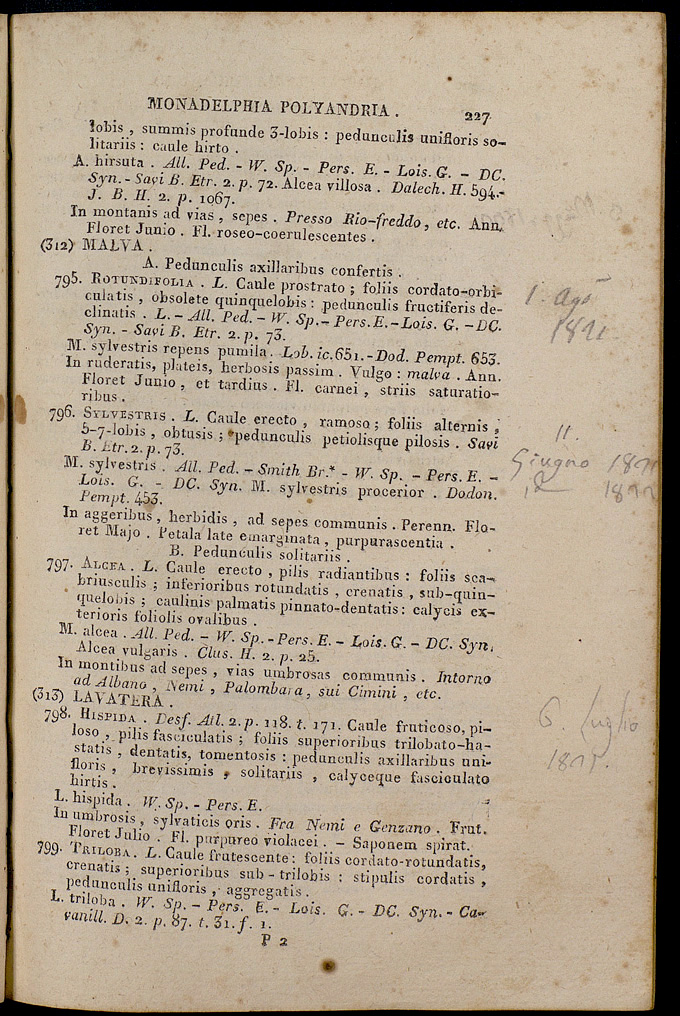 MONADELPHIA POLYANDRIA . 227
lobis , summis profunde 3-lobis : pedunculis unifloris so-
litariis : caule hirto .
A. hirsuta . All. Ped. - W. Sp. - Pers. E. - Lois. G. - DC.
Syn. - Savi B. Etr. 2. p. 72. Alcea villosa . Dalech. H. 594.-
J. B. H. 2. p. 1067.
In montanis ad vias , sepes . Presso Rio-freddo, etc. Ann.
Floret Junio . Fl. roseo-coerulescentes .
(312) MALVA .
A. Pedunculis axillaribus confertis .
795. ROTUNDIFOLIA . L. Caule prostrato ; foliis cordato-orbi-
culatis , obsolete quinquelobis : pedunculis fructiferis de-
clinatis . L. - All. Ped. - W. Sp. - Pers. E. - Lois. G. - DC.
Syn. - Savi B. Etr. 2. p. 73.
M. sylvestris repens pumila. Lob. ic. 651. - Dod. Pempt. 653.
In ruderatis, plateis, herbosis passim . Vulgo : malva . Ann.
Floret Junio , et tardius . Fl. carnei , striis saturatio-
ribus .
1. Ago
796. SYLVESTRIS . L. Caule erecto , ramoso ; foliis alternis ,
5-7-lobis , obtusis ; pedunculis petiolisque pilosis . Savi
B. Etr. 2. p. 73.
M. sylvestris . All. Ped. - Smith Br.* - W. Sp. - Pers. E. -
Lois. G. - DC. Syn. M. sylvestris procerior . Dodon.
Pempt. 453.
In aggeribus , herbidis , ad sepes communis . Perenn. Flo-
ret Majo . Petala late emarginata , purpurascentia .
11.
Giugno
B. Pedunculis solitariis .
797. ALCEA . L. Caule erecto , pilis radiantibus : foliis sca-
briusculis ; inferioribus rotundatis , crenatis , sub-quin-
quelobis ; caulinis palmatis pinnato-dentatis : calycis ex-
terioris foliolis ovalibus .
M. alcea . All. Ped. - W. Sp. - Pers. E. - Lois. G. - DC. Syn.
Alcea vulgaris . Clus. H. 2. p. 25.
In montibus ad sepes , vias umbrosas communis . Intorno
ad Albano , Nemi , Palombara , sui Cimini , etc.
(313) LAVATERA .
798. HISPIDA . Desf. Atl. 2. p. 118. t. 171. Caule fruticoso, pi-
loso , pilis fasciculatis ; foliis superioribus trilobato-ha-
statis , dentatis, tomentosis : pedunculis axillaribus uni-
floris , brevissimis , solitariis , calyceque fasciculato
hirtis .
L. hispida . W. Sp. - Pers. E.
In umbrosis , sylvaticis oris . Fra Nemi e Genzano . Frut.
Floret Julio . Fl. purpureo violacei . - Saponem spirat.
6. Luglio
799. TRILOBA . L. Caule frutescente : foliis cordato-rotundatis,
crenatis ; superioribus sub-trilobis : stipulis cordatis ,
pedunculis unifloris , aggregatis .
L. triloba . W. Sp. - Pers. E. - Lois. G. - DC. Syn. - Ca-
vanill. D. 2. p. 87. t. 31. f. 1.
P 2